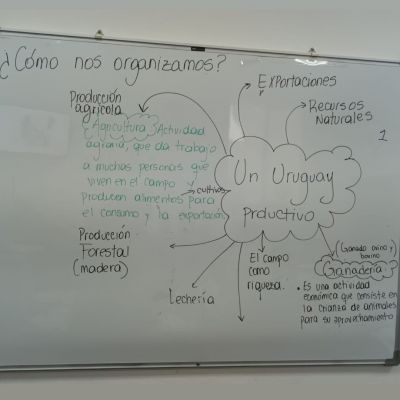 ¿Cómo nos organizamos?
Exportaciones
Recursos
Naturales
1
Producción
agrícola
¿Agricultura? Actividad
agraria, que da trabajo
a muchas personas que
viven en el campo y
producen alimentos para
el consumo y la exportación
cultivos
Un Uruguay
Prductivo
Producción
Forestal
(madera)
Lechería
El campo
como
riqueza.
(Ganado ovino y
bovino)
Ganadería?
• Es una actividad
económica que consiste en
la crianza de animales
para su aprovechamiento